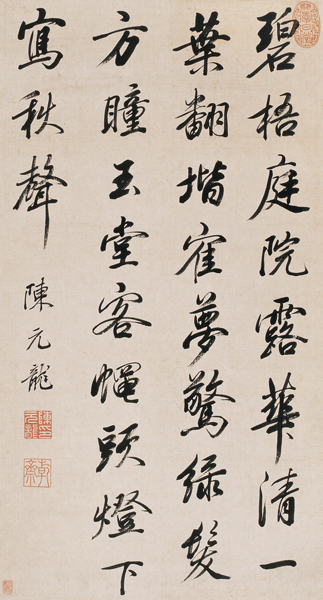 碧梧庭院露華清一
葉翻堦寉夢驚緑髮
方瞳玉堂客蠅頭燈下
寫秋聲
陳元龍